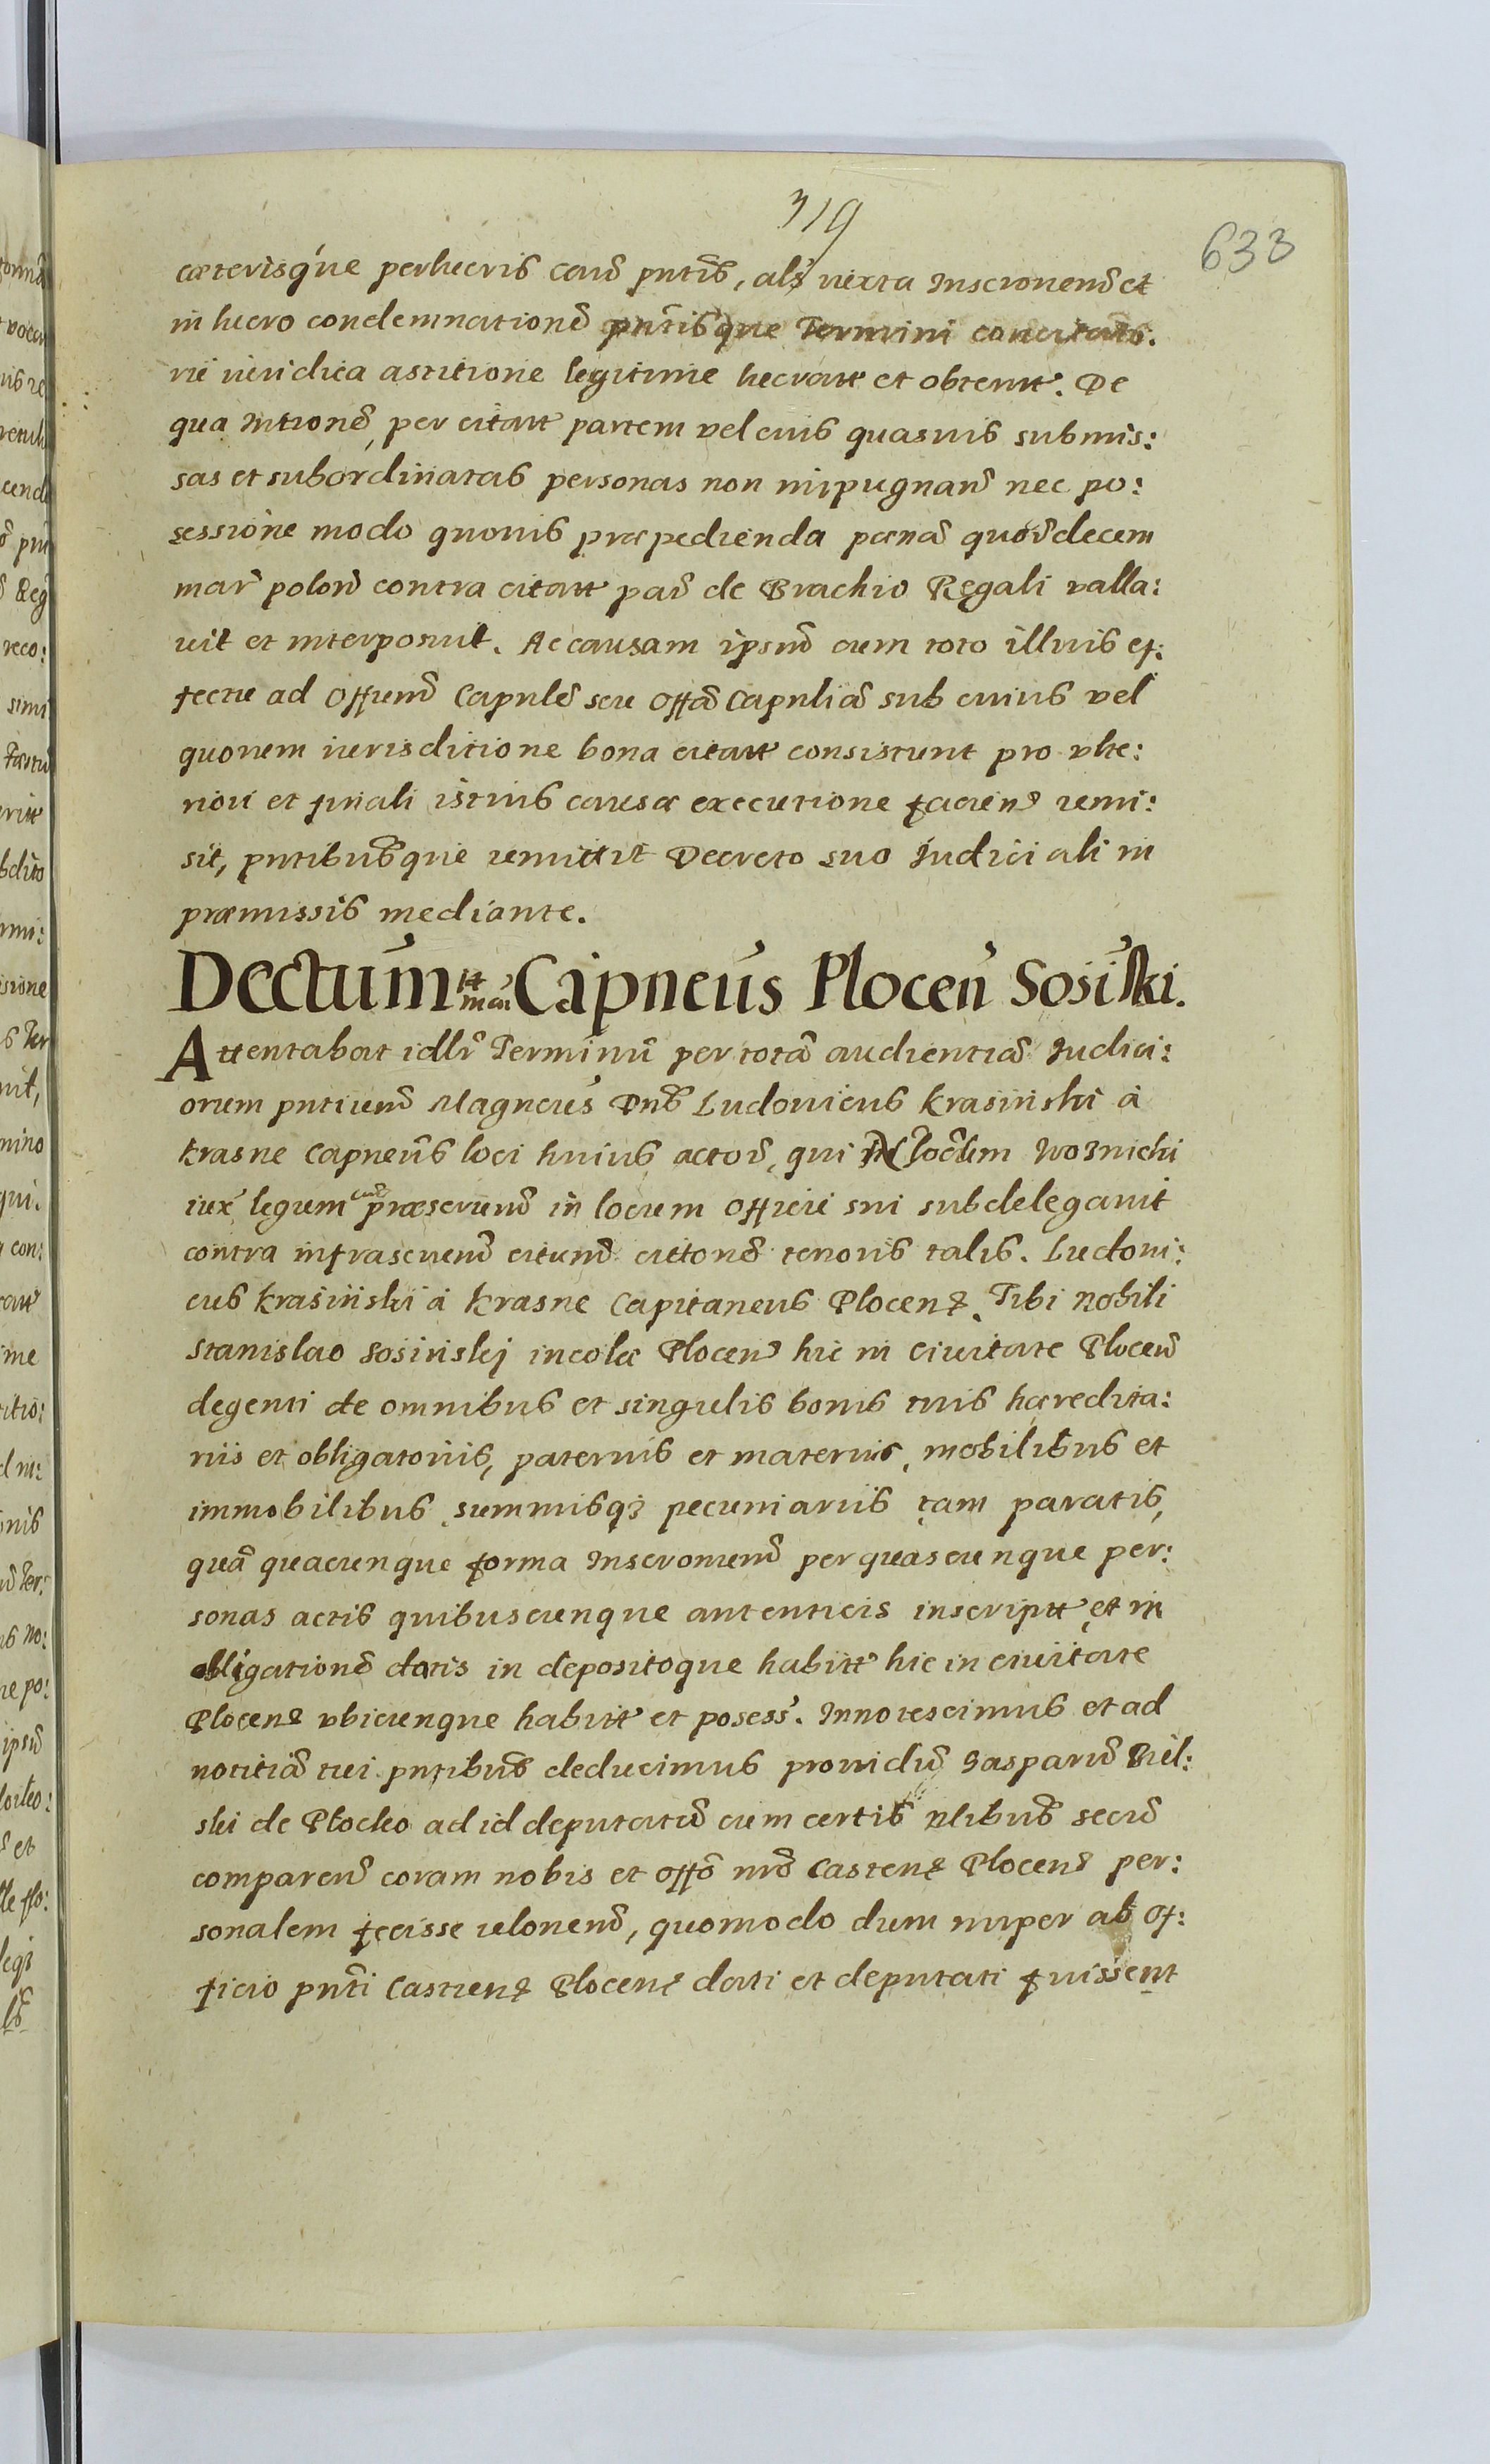 319
633
cæterisque per lucris caus̃ pn̄tib̃, als̃ iuxta Inscr̃onem̃ et
in lucro condemnationẽ pn̄tisque Termini concitatio:
nẽ iuridica astitione legitime lucratt et obtent̃. De
qua Intr̃onẽ per citatt partem vel eius quasuis submis:
sas et subordinatas personas non impugnan̄ nec po:
sessione modo quouis præpedienda pænã quatr̃decem
mar̃ polon̄ contra citatt par̃ de Brachio Regali valla:
uit et interposuit. Ac causam ipsam̃ cum toto illius ef:
fectu ad Offium̃ Capnlẽ seu Offã Capnliã sub cuius vel
quorum iurisditione bona citatt consistunt pro vlte:
riori et finali istius causæ executione facien̄ remi:
sit, pn̄tibusque remittit Decreto suo Judiciali in
præmissis mediante.
Dectum Capneus Plocen̄ Sosiński.
Attentabat idlr̃ Terminũ per totã audientiã Judici:
orum pn̄tium̃ Magncus Dn̄s Ludouicus Krasiński à
Krasne Capneus loci huius actor̃, qui Woznicki
iux̃ legum præscrium̃ in locum Officii sui subdelegauit
contra infrascrium̃ citum̃ cittonẽ tenoris talis. Ludoui:
cus Krasiński à Krasne Capitaneus Plocen̄. Tibi Nobili
Stanislao Sosiński incolæ Plocen̄ hic in Ciuitate Plocen̄
degenti de omnibus et singulis bonis tuis hæredita:
riis et obligatoriis, paternis et maternis, mobilibus et
immobilibus summisq3 pecuniariis tam paratis,
quã quacunque forma Inscr̃onum̃ per quascunque per:
sonas actis quibuscunque autenticis inscriptt et in
obligationẽ datis in depositoque habitt hic in ciuitate
Plocen̄ vbicunque habitt et posess̃. Innotescimus et ad
notitiã tui pn̄tibus deducimus prouidũ Gasparũ Biel:
ski de Plocko ad id deputatũ cum certis nlibus secũ
comparen̄ coram nobis et offõ nrõ Castren̄ Plocen̄ per:
sonalem fecisse relonem̃, quomodo dum nuper ab of:
ficio pn̄ti Castren̄ Plocen̄ dati et deputati fuissent